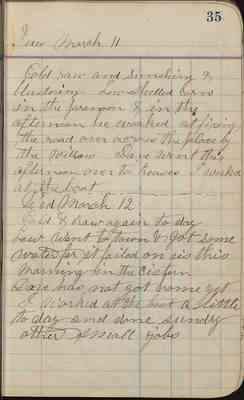 35
Tues March 11
Cold raw and sunshiny &
blustering Low shelled corn
in the forenoon & in the
afternoon he worked at fixing
the road over across the place by
the Willow Dave went this
afternoon over to howes I worked
at the boat
Wed March 12
Cold & raw again to day
Low went to town & got some
water for it failed on us this
morning in the cistern
Dave has not got home yet
I worked at the boat a little
to day and done sundry
other small jobs